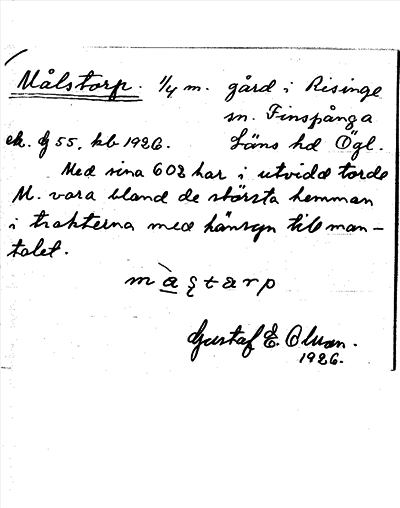 Målstorp. 1/4 m. gård i Risinge
sn. Finspånga
ek. bl 55, kb 1926. Läns hd Ögl.
Med sina 602 har i utvidd torde
M. vara bland de största hemman
i trakterna med hänsyn till man-
talet.
Gustaf E. Olsson.
1926.